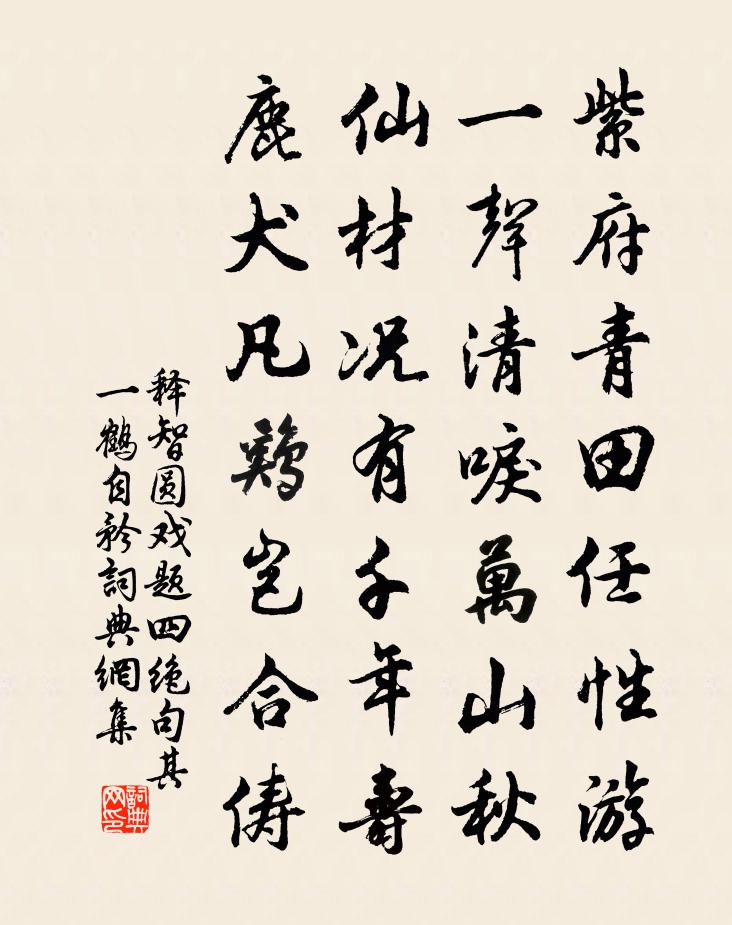 紫府青田任性游
一聲清唳萬山秋
仙材况有千年壽
鹿犬凡鷄岂合俦
释智圆戏题四绝句其
一鹤自矜詞典網集
詞典网印